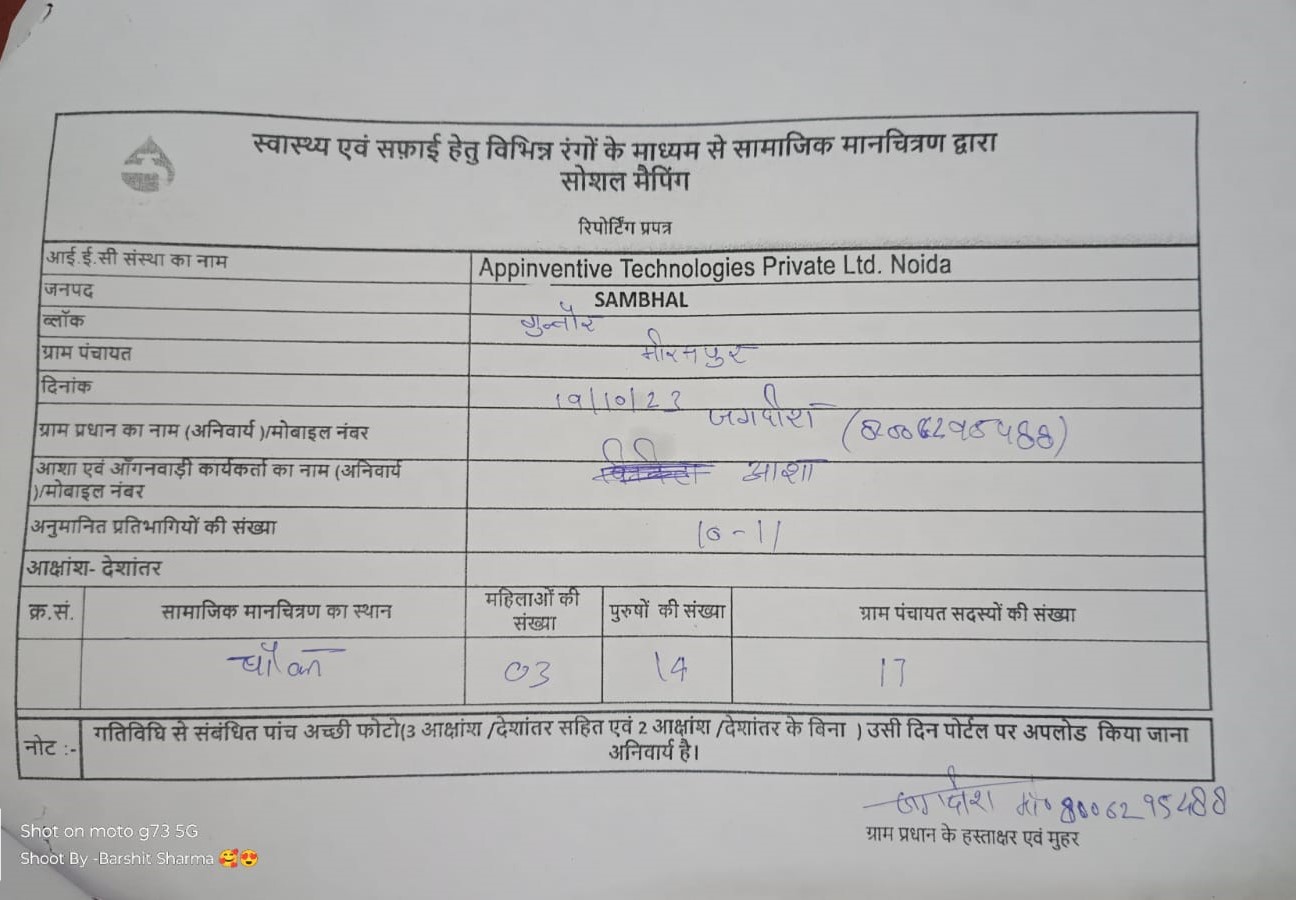 स्वास्थ्य एवं सफ़ाई हेतु विभिन्न रंगों के माध्यम से सामाजिक मानचित्रण द्वारा
सोशल मैपिंग
रिपोर्टिंग प्रपत्र
आई.ई.सी संस्था का नाम Appinventive Technologies Private Ltd. Noida
जनपद SAMBHAL
ब्लॉक गुन्नौर
ग्राम पंचायत मीरमपुर
दिनांक 19/10/23
ग्राम प्रधान का नाम (अनिवार्य )/मोबाइल नंबर जगदीश (8006295488)
आशा एवं आँगनवाड़ी कार्यकर्ता का नाम (अनिवार्य
)/मोबाइल नंबर आशा
अनुमानित प्रतिभागियों की संख्या 10-11
आक्षांश- देशांतर
क्र.सं. सामाजिक मानचित्रण का स्थान महिलाओं की संख्या पुरुषों की संख्या ग्राम पंचायत सदस्यों की संख्या
चौक 03 14 17
नोट :- गतिविधि से संबंधित पांच अच्छी फोटो(3 आक्षांश /देशांतर सहित एवं 2 आक्षांश /देशांतर के बिना ) उसी दिन पोर्टल पर अपलोड किया जाना
अनिवार्य है।
जगदीश मो० 8006295488
ग्राम प्रधान के हस्ताक्षर एवं मुहर
Shot on moto g73 5G
Shoot By -Barshit Sharma 🥰😍